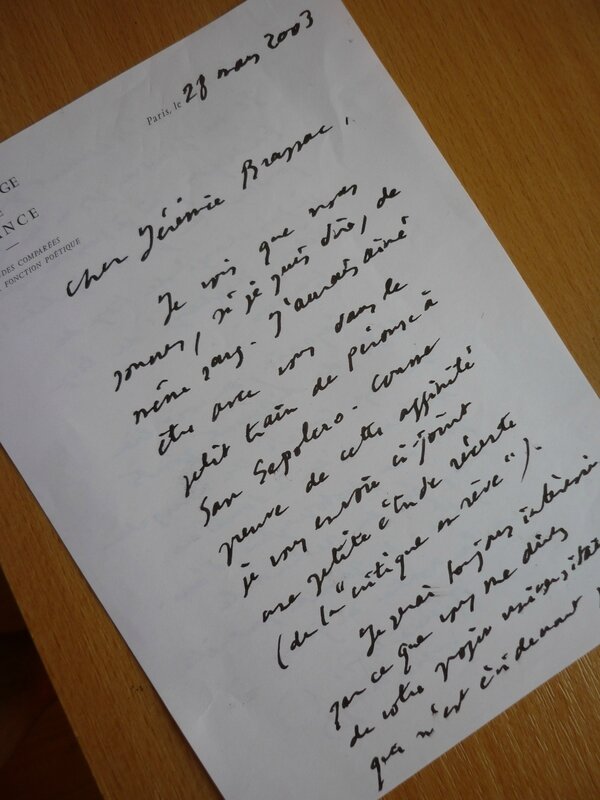 Paris, le 28 mars 2003
GE
NCE
DES COMPARÉES
FONCTION POÉTIQUE
Cher Jérémie Brassac,
Je vois que nous
sommes, si je puis dire, de
même sang. J'aurais aimé
être avec vous dans le
petit train de Pérouse à
San Sepolcro. Comme
preuve de cette affinité
je vous envoie ci-joint
une petite étude récente
(de la "critique en rêve").
Je serai toujours intéressé
par ce que vous me direz
de votre projet universitaire
qui n'est évidemment